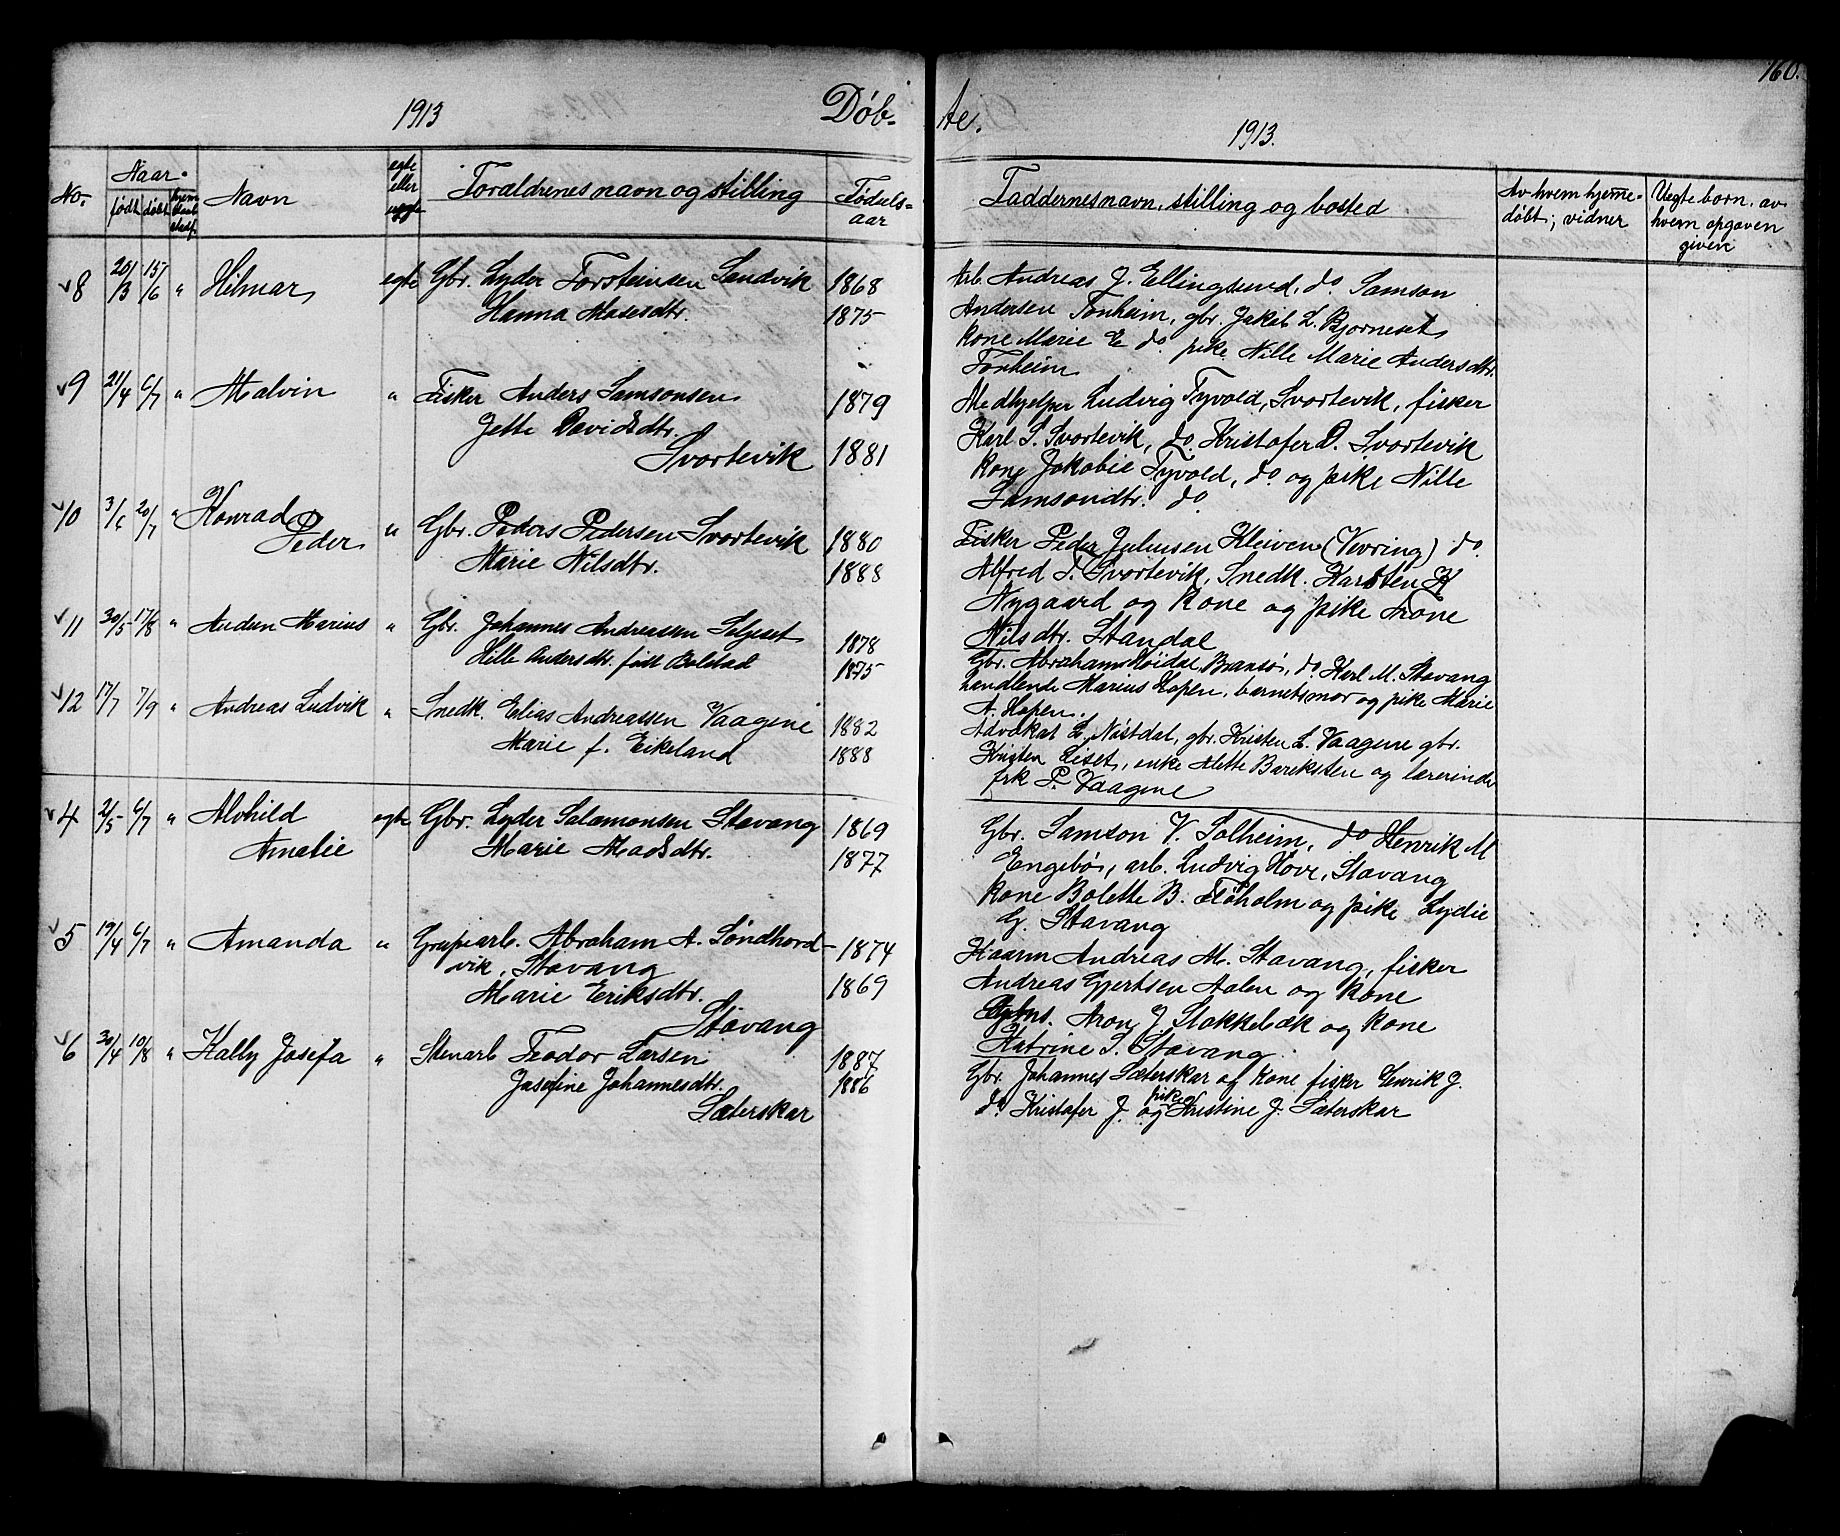 160.
1913 Døb- te. 1913.
No. Naar Navn egte eller uegte Forældrenes navn og stilling Fødels- aar Faddernes navn, stilling og bosted Av hvem hjemme- døbt; vidner Uegte born, av hvem opgaven given
født døbt
8 20/3 15/6 " Hilmar egte Gbr. Lyder Torsteinsen Sandvik 1868
Hanna Mosesdtr. 1875
Arb. Andreas J. Ellingsund, do Samson
Andersen Tonheim, gbr. Jakob L. Bjorneset
kone Marie E do. pike Nille Marie Andersdtr.
Tonheim
9 21/4 6/7 " Malvin " Fisker Anders Samsonsen 1879
Jette Davidsdtr. 1881
Svortevik
Medhjelper Ludvig Tyvold, Svortevik, fisker
Karl S. Svortevik, do. Kristofer D. Svortevik
kone Jakobie Tyvold, do og pike Nille
Samsondtr. do
10 3/6 20/7 " Konrad
Peder " Gbr. Peders Pedersen Svortevik 1880
Marie Nilsdtr. 1888
Fisker Peder Juliusen Kleiven (Vevring) do.
Alfred P. Svortevik, Snedk. Karsten K
Nygaard og kone og pike Trone
Nilsdtr. Standal
11 30/5 17/8 " Audun Marius " Gbr. Johannes Andreassen Seljeset 1878
Hille Andersdtr. født Bolstad 1875
Gbr. Abraham Høidal, Bransø, do Karl M. Stavang
Landhandle Marius Hopen, barnets mor og pike Marie
A. Hopen.
12 17/7 7/9 " Andreas Ludvik " Snedk. Elias Andreassen Vaagene 1882
Marie f. Eikeland 1888
Advokat L. Nøstdal, gbr. Kristen L. Vaagene gbr.
Kristen Liset, enke Alette Bareksten og lærerinde
frk P. Vaagene
4 2/5 6/7 " Alvhild
Amalie egte Gbr. Lyder Salamonsen Stavang 1869
Marie Madsdtr. 1877
Gbr. Samson V. Solheim, do Henrik M
Engebø, arb. Ludvig Hovr, Stavang
kone Bolette B. Fløholm og pike Lydie
G. Stavang
5 19/4 6/7 " Amanda " Grubearb. Abraham A. Søndhord- 1874
vik, Stavang
Marie Eriksdtr. 1869
Stavang
Kaarm Andreas M. Stavang, fisker
Andreas Gjertsen Aalen og kone
Aron J. Stokkebæk og kone
Katrine S. Stavang
6 30/4 10/8 " Kally Josefa " Stenarb Teodor Larsen 1887
Josefine Johannesdtr. 1886
Sæterskar
Gbr. Johannes Sæterskar og kone fisker Henrik J.
do. Kristofer J. og pike Kristine J. Sæterskar